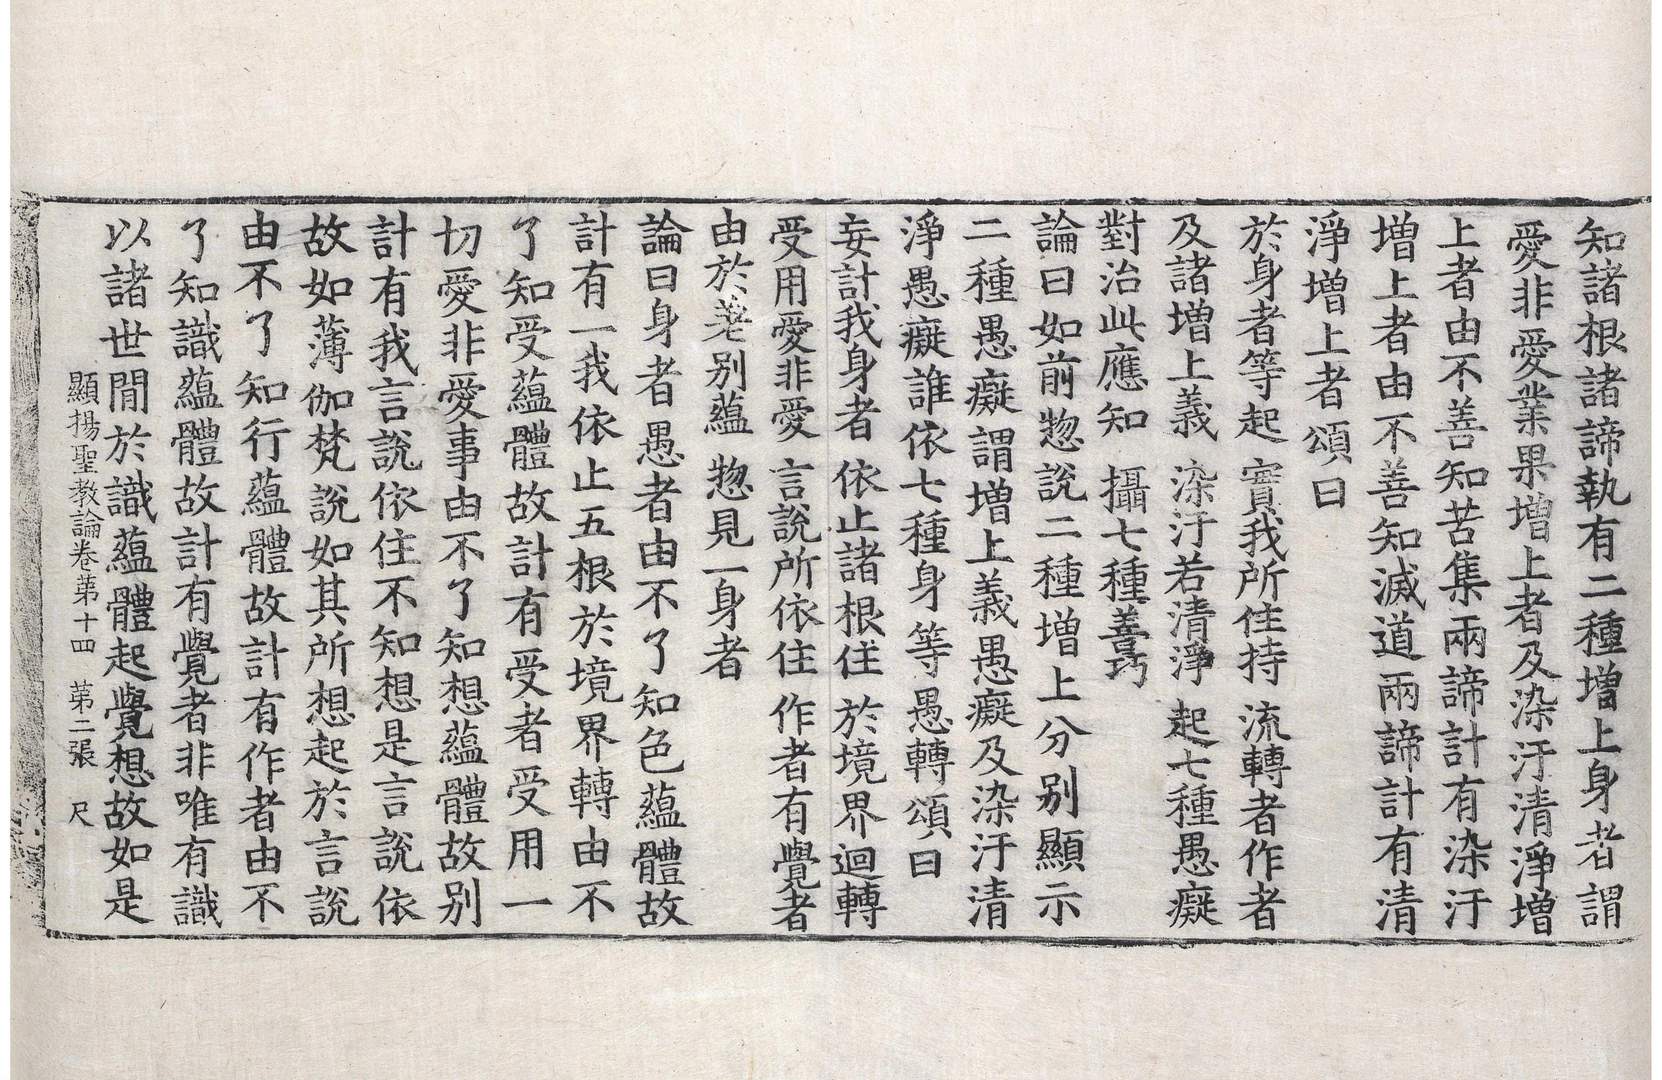 知諸根諸諦執有二種增上身者謂
愛非愛業果增上者及染汙清淨增
上者由不善知苦集兩諦計有染汙
增上者由不善知滅道兩諦計有清
淨增上者頌曰
於身者等起 實我所住持 流轉者作者
及諸增上義 染汙若清淨 起七種愚癡
對治此應知 攝七種善巧
論曰如前惣說二種增上分別顯示
二種愚癡謂增上義愚癡及染汙清
淨愚癡誰依七種身等愚轉頌曰
妄計我身者 依止諸根住 於境界迴轉
受用愛非愛 言說所依住 作者有覺者
由於差別蘊 惣見一身者
論曰身者愚者由不了知色蘊體故
計有一我依止五根於境界轉由不
了知受蘊體故計有受者受用一
切愛非愛事由不了知想蘊體故別
計有我言說依住不知想是言說依
故如薄伽梵說如其所想起於言說
由不了知行蘊體故計有作者由不
了知識蘊體故計有覺者非唯有識
以諸世間於識蘊體起覺想故如是
顯揚聖教論卷第十四 第二張 尺